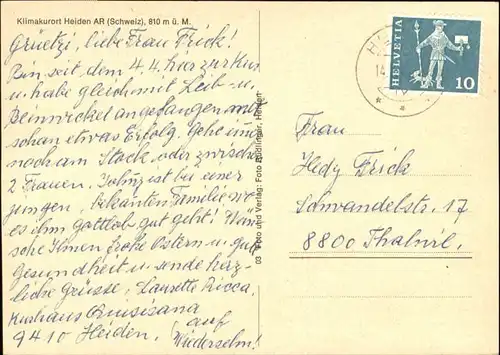 Klimakurort Heiden AR (Schweiz), 810 m ü. M.
Grüetzi, liebe Frau Frick!
Bin seit dem 4.4. hier zur Kur
u. habe gleich mit Leib- u.
Beinwickel angefangen
schon etwas Erfolg. Gehe
noch am Stock oder zwischen
2 Frauen. ist bei einer
jungen, bekannten Familie wo
es ihm Gottlob gut geht! Wün-
sche Ihnen frohe Ostern u. gute
Gesundheit u. sende herz-
liche Grüsse, Laurette Ricca,
Kurhaus Quisisana
9410 Heiden. auf
Wiedersehn!
03 Foto und Verlag: Foto Büdlinger, Heiden
HELVETIA
10
Frau
Hedy Frick
Schwandelstr. 17
8800 Thalwil.